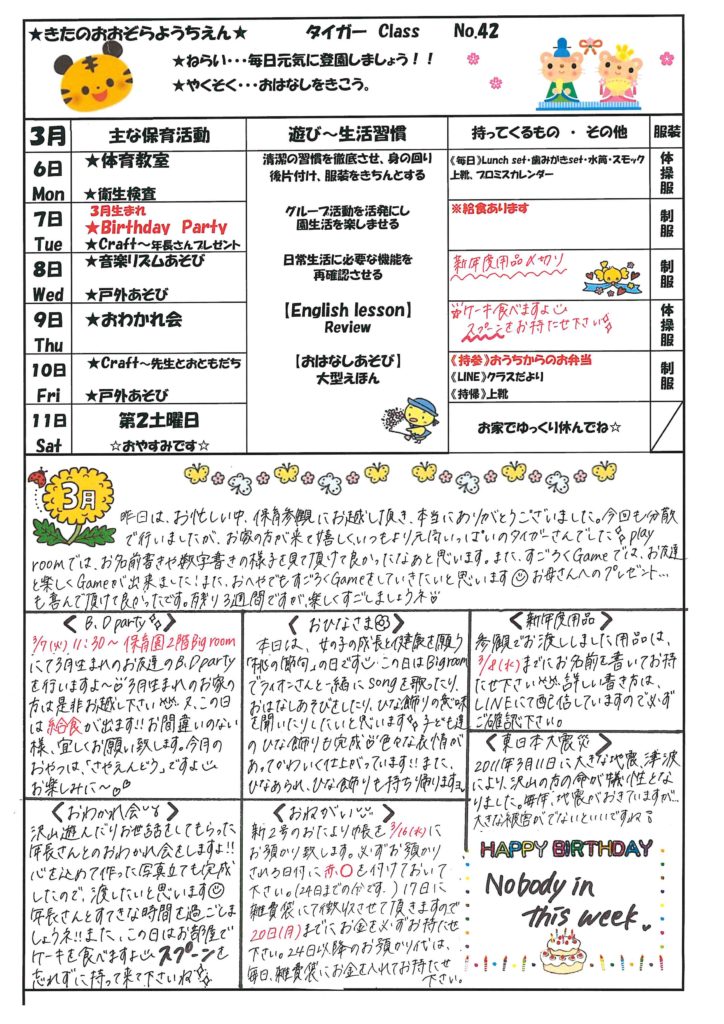 ★きたのおおぞらようちえん★ タイガー Class No.42
★ねらい･･･毎日元気に登園しましょう！！
★やくそく･･･おはなしをきこう。
3月 主な保育活動 遊び～生活習慣 持ってくるもの ・ その他 服装
6日 Mon
★体育教室
★衛生検査
清潔の習慣を徹底させ、身の回り
後片付け、服装をきちんとする
《毎日》Lunch set・歯みがきset・水筒・スモック
上靴、プロミスカレンダー
体操服
7日 Tue
3月生まれ
★Birthday Party
★Craft～年長さんプレゼント
グループ活動を活発にし
園生活を楽しませる
※給食あります
制服
8日 Wed
★音楽リズムあそび
★戸外あそび
日常生活に必要な機能を
再確認させる
新年度用品〆切り
制服
9日 Thu
★おわかれ会
【English lesson】
Review
ケーキ食べますよ
スプーンをお持たせ下さい
体操服
10日 Fri
★Craft～先生とおともだち
★戸外あそび
【おはなしあそび】
大型えほん
《持参》おうちからのお弁当
《LINE》クラスだより
《持帰》上靴
制服
11日 Sat
第2土曜日
☆おやすみです☆
お家でゆっくり休んでね☆
3月
昨日は、お忙しい中、保育参観にお越し頂き、本当にありがとうございました。今回も分散
で行いましたが、お家の方が来て嬉しくいつもより元気いっぱいのタイガーさんでした play
roomでは、お名前書きや数字書きの様子を見て頂けて良かったなぁと思います。また、すごろくGameでは、お友達
と楽しくGameが出来ました！また、おへやでもすごろくGameをしていきたいと思います お母さんへのプレゼント…
も喜んで頂けて良かったです。残り3週間ですが、楽しくすごしましょうネ
〈B.D party〉
3/7(火) 11:30～ 保育園2階Big room
にて3月生まれのお友達のB.D party
を行いますよ～ 3月生まれのお家の
方は是非お越し下さい 又、この日
は給食が出ます!! お間違いのない
様、宜しくお願い致します。今月の
おやつは、「さやえんどう」ですよ
お楽しみに～
〈おひなさま〉
本日は、女の子の成長と健康を願う
「桃の節句」の日です この日はBig room
でライオンさんと一緒にsongを歌ったり、
おはなしあそびをしたり、ひな飾りの意味
を聞いたりしたいと思います 子ども達
のひな飾りも完成 色々な表情が
あってかわいく仕上がっています!! また、
ひなあられ、ひな飾りも持ち帰りますヨ
〈新年度用品〉
参観でお渡ししました用品は、
3/8(水)までにお名前を書いてお持
たせ下さい 詳しい書き方は、
LINEにて配信していますので必ず
ご確認下さい。
〈東日本大震災〉
2011年3月11日に大きな地震、津波
により、沢山の方の命が犠牲とな
りました。毎年、地震がおきていますが…
大きな被害がでないといいですね
〈おわかれ会〉
沢山遊んだりお世話をしてもらった
年長さんとのおわかれ会をしますよ!!
心を込めて作った写真立ても完成
したので、渡したいと思います
年長さんとすてきな時間を過ごしま
しょうネ!! また、この日はお部屋で
ケーキを食べますよ スプーンを
忘れずに持って来て下さいね
〈おねがい〉
新2号のおたより帳を3/16(木)に
お預かり致します。必ずお預かり
される日付に赤○を付けておいて
下さい。(24日までの分です。) 17日に
雑費袋にて徴収させて頂きますので
20日(月)までにお金を必ずお持たせ
下さい。24日以降のお預かり代は、
毎日、雑費袋にお金を入れてお持たせ
下さい。
HAPPY BIRTHDAY
Nobody in
this week.